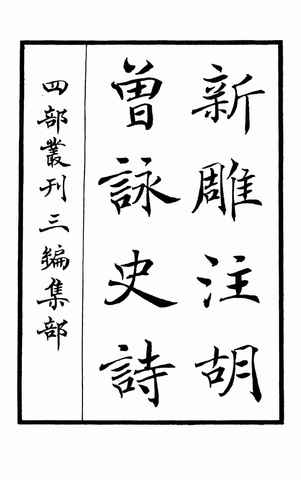 新雕注胡
曾詠史詩
四部叢刊三編集部